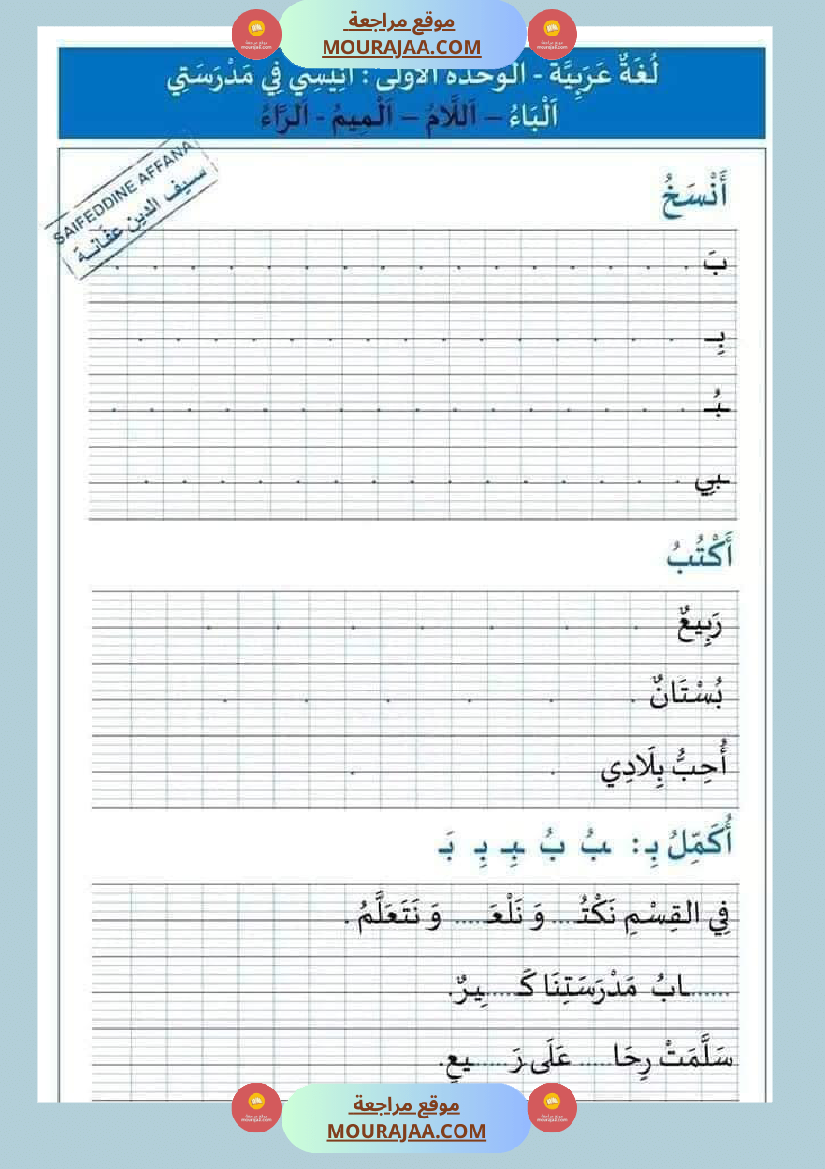 موقع مراجعة
MOURAJAA.COM
لُغَةٌ عَرَبِيَّة - الوحدة الأولى : أَنِيسِي فِي مَدْرَسَتِي
اَلْبَاءُ – اَللَّامُ – اَلْمِيمُ - اَلرَّاءُ
SAIFEDDINE AFFANA
سيف الدين عفانة
أَنْسَخُ
بَ
بِـ
ـبُـ
ـبِي
أَكْتُبُ
رَبِيعٌ
بُسْتَانٌ
أُحِبُّ بِلَادِي
أُكَمِّلُ بِـ: ـبُ بُ ـبِـ بِـ بَـ
فِي القِسْمِ نَكْتُـ.... وَ نَلْعَـ..... وَ نَتَعَلَّمُ .
......ـابُ مَدْرَسَتِنَا كَـ.....ـيرٌ.
سَلَّمَتْ رِحَا..... عَلَى رَ......ـيعٍ.
موقع مراجعة
MOURAJAA.COM